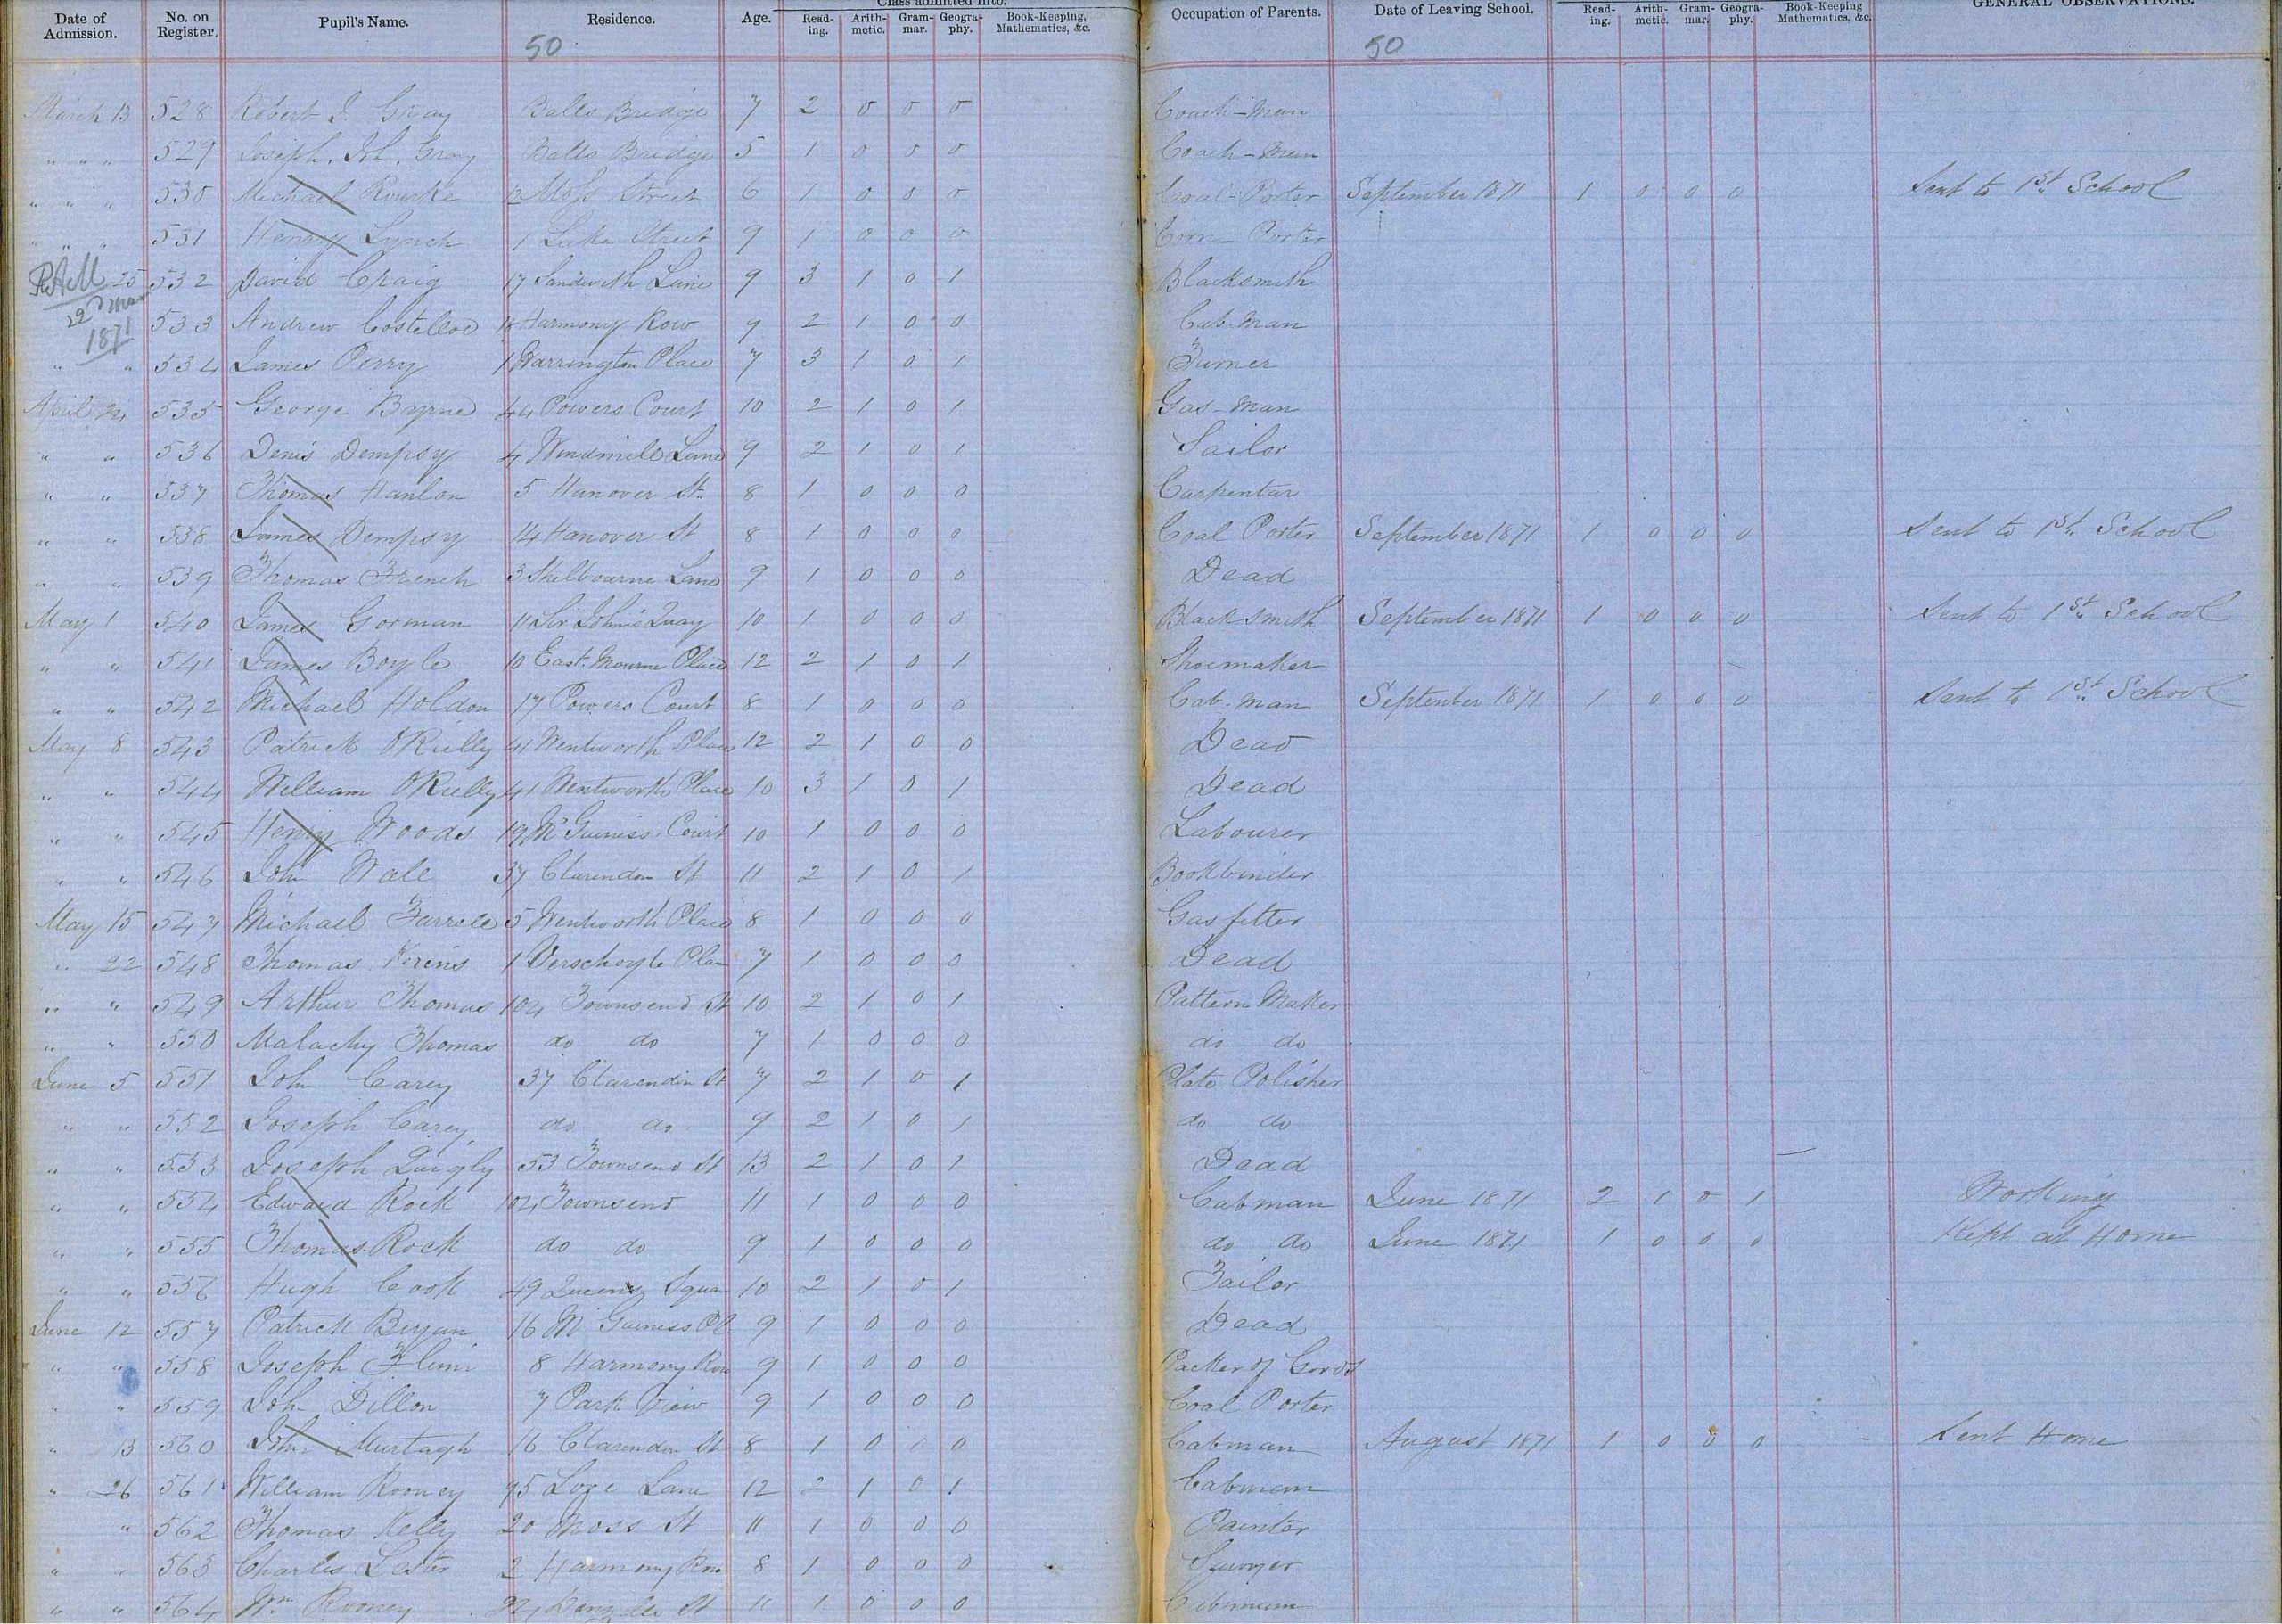 Date of Admission. No. on Register. Pupil's Name. Residence. Age. Class admitted into. Read-ing. Arith-metic. Gram-mar. Geogra-phy. Book-Keeping, Mathematics, &c. Occupation of Parents. Date of Leaving School. Read-ing. Arith-metic. Gram-mar. Geogra-phy. Book-Keeping Mathematics, &c. GENERAL OBSERVATIONS.
50 50
March 13 528 Robert J. Gray Balls Bridge 7 2 0 0 0 Coach-man
" " " 529 Joseph. Jh. Gray Balls Bridge 5 1 0 0 0 Coach-man
" " " 530 Michael Rourke 12 Moss Street 6 1 0 0 0 Coal-Porter September 1871 1 0 0 0 Sent to 1st School
" " " 531 Henry Lynch 1 Luke Street 9 1 0 0 0 Corn-Porter
25 532 David Craig 17 Sandwith Lane 9 3 1 0 1 Blacksmith
22 1871
533 Andrew Costelloe 18 Harmony Row 9 2 1 0 0 Cab-man
" " 534 James Perry 1 Warrington Place 7 3 1 0 1 Turner
April 24 535 George Byrne 44 Powers Court 10 2 1 0 1 Gas-man
" " 536 Denis Dempsy 4 Windmill Lane 9 2 1 0 1 Sailor
" " 537 Thomas Hanlon 5 Hanover St. 8 1 0 0 0 Carpentar
" " 538 James Dempsy 14 Hanover St 8 1 0 0 0 Coal Porter September 1871 1 0 0 0 Sent to 1st School
" " 539 Thomas French 3 Shelbourne Lane 9 1 0 0 0 Dead
May 1 540 James Gorman 11 Sir John's Quay 10 1 0 0 0 Black smith September 1871 1 0 0 0 Sent to 1st School
" " 541 James Boyle 10 East Mourne Place 12 2 1 0 1 Shoemaker
" " 542 Michael Holdon 17 Powers Court 8 1 0 0 0 Cab-man September 1871 1 0 0 0 Sent to 1st School
May 8 543 Patrick O'Rielly 41 Wentworth Place 12 2 1 0 0 Dead
" " 544 William O'Rielly 41 Wentworth Place 10 3 1 0 1 Dead
" " 545 Henry Woods 19 Mc Guiniss Court 10 1 0 0 0 Labourer
" " 546 John Wall 37 Clarendon St 11 2 1 0 1 Bookbinder
May 15 547 Michael Farrell 5 Wentworth Place 8 1 0 0 0 Gas fitter
" 22 548 Thomas Kerins 1 Verschoyle Plac 7 1 0 0 0 Dead
" " 549 Arthur Thomas 104 Townsend St 10 2 1 0 1 Pattern Maker
" " 550 Malachy Thomas do do 7 1 0 0 0 do do
June 5 551 John Carey 37 Clarendon St 7 2 1 0 1 Plate Polisher
" " 552 Joseph Carey do do 9 2 1 0 1 do do
" " 553 Joseph Quigly 53 Townsend St 13 2 1 0 1 Dead
" " 554 Edward Rock 104 Townsend 11 1 0 0 0 Cabman June 1871 2 1 0 1 Working
" " 555 Thomas Rock do do 9 1 0 0 0 do do June 1871 1 0 0 0 Kept at Home
" " 556 Hugh Cook 49 Queens Squar 10 2 1 0 1 Tailor
June 12 557 Patrick Bergan 16 Mc Guiness Pl 9 1 0 0 0 Dead
" " 558 Joseph 8 Harmony Row 9 1 0 0 0 Packer of Goods
" " 559 John Dillon 7 Park View 9 1 0 0 0 Coal Porter
" 13 560 John Murtagh 16 Clarendon St 8 1 0 0 0 Cabman August 1871 1 0 0 0 Sent Home
" 26 561 William Rooney 95 Lane 12 2 1 0 1 Cabman
" 562 Thomas Kelly 20 Moss St 11 1 0 0 0 Painter
" " 563 Charles Lester 2 Harmony Row 8 1 0 0 0 Sawyer
" " 564 Wm Rooney St 11 1 0 0 0 Cabman